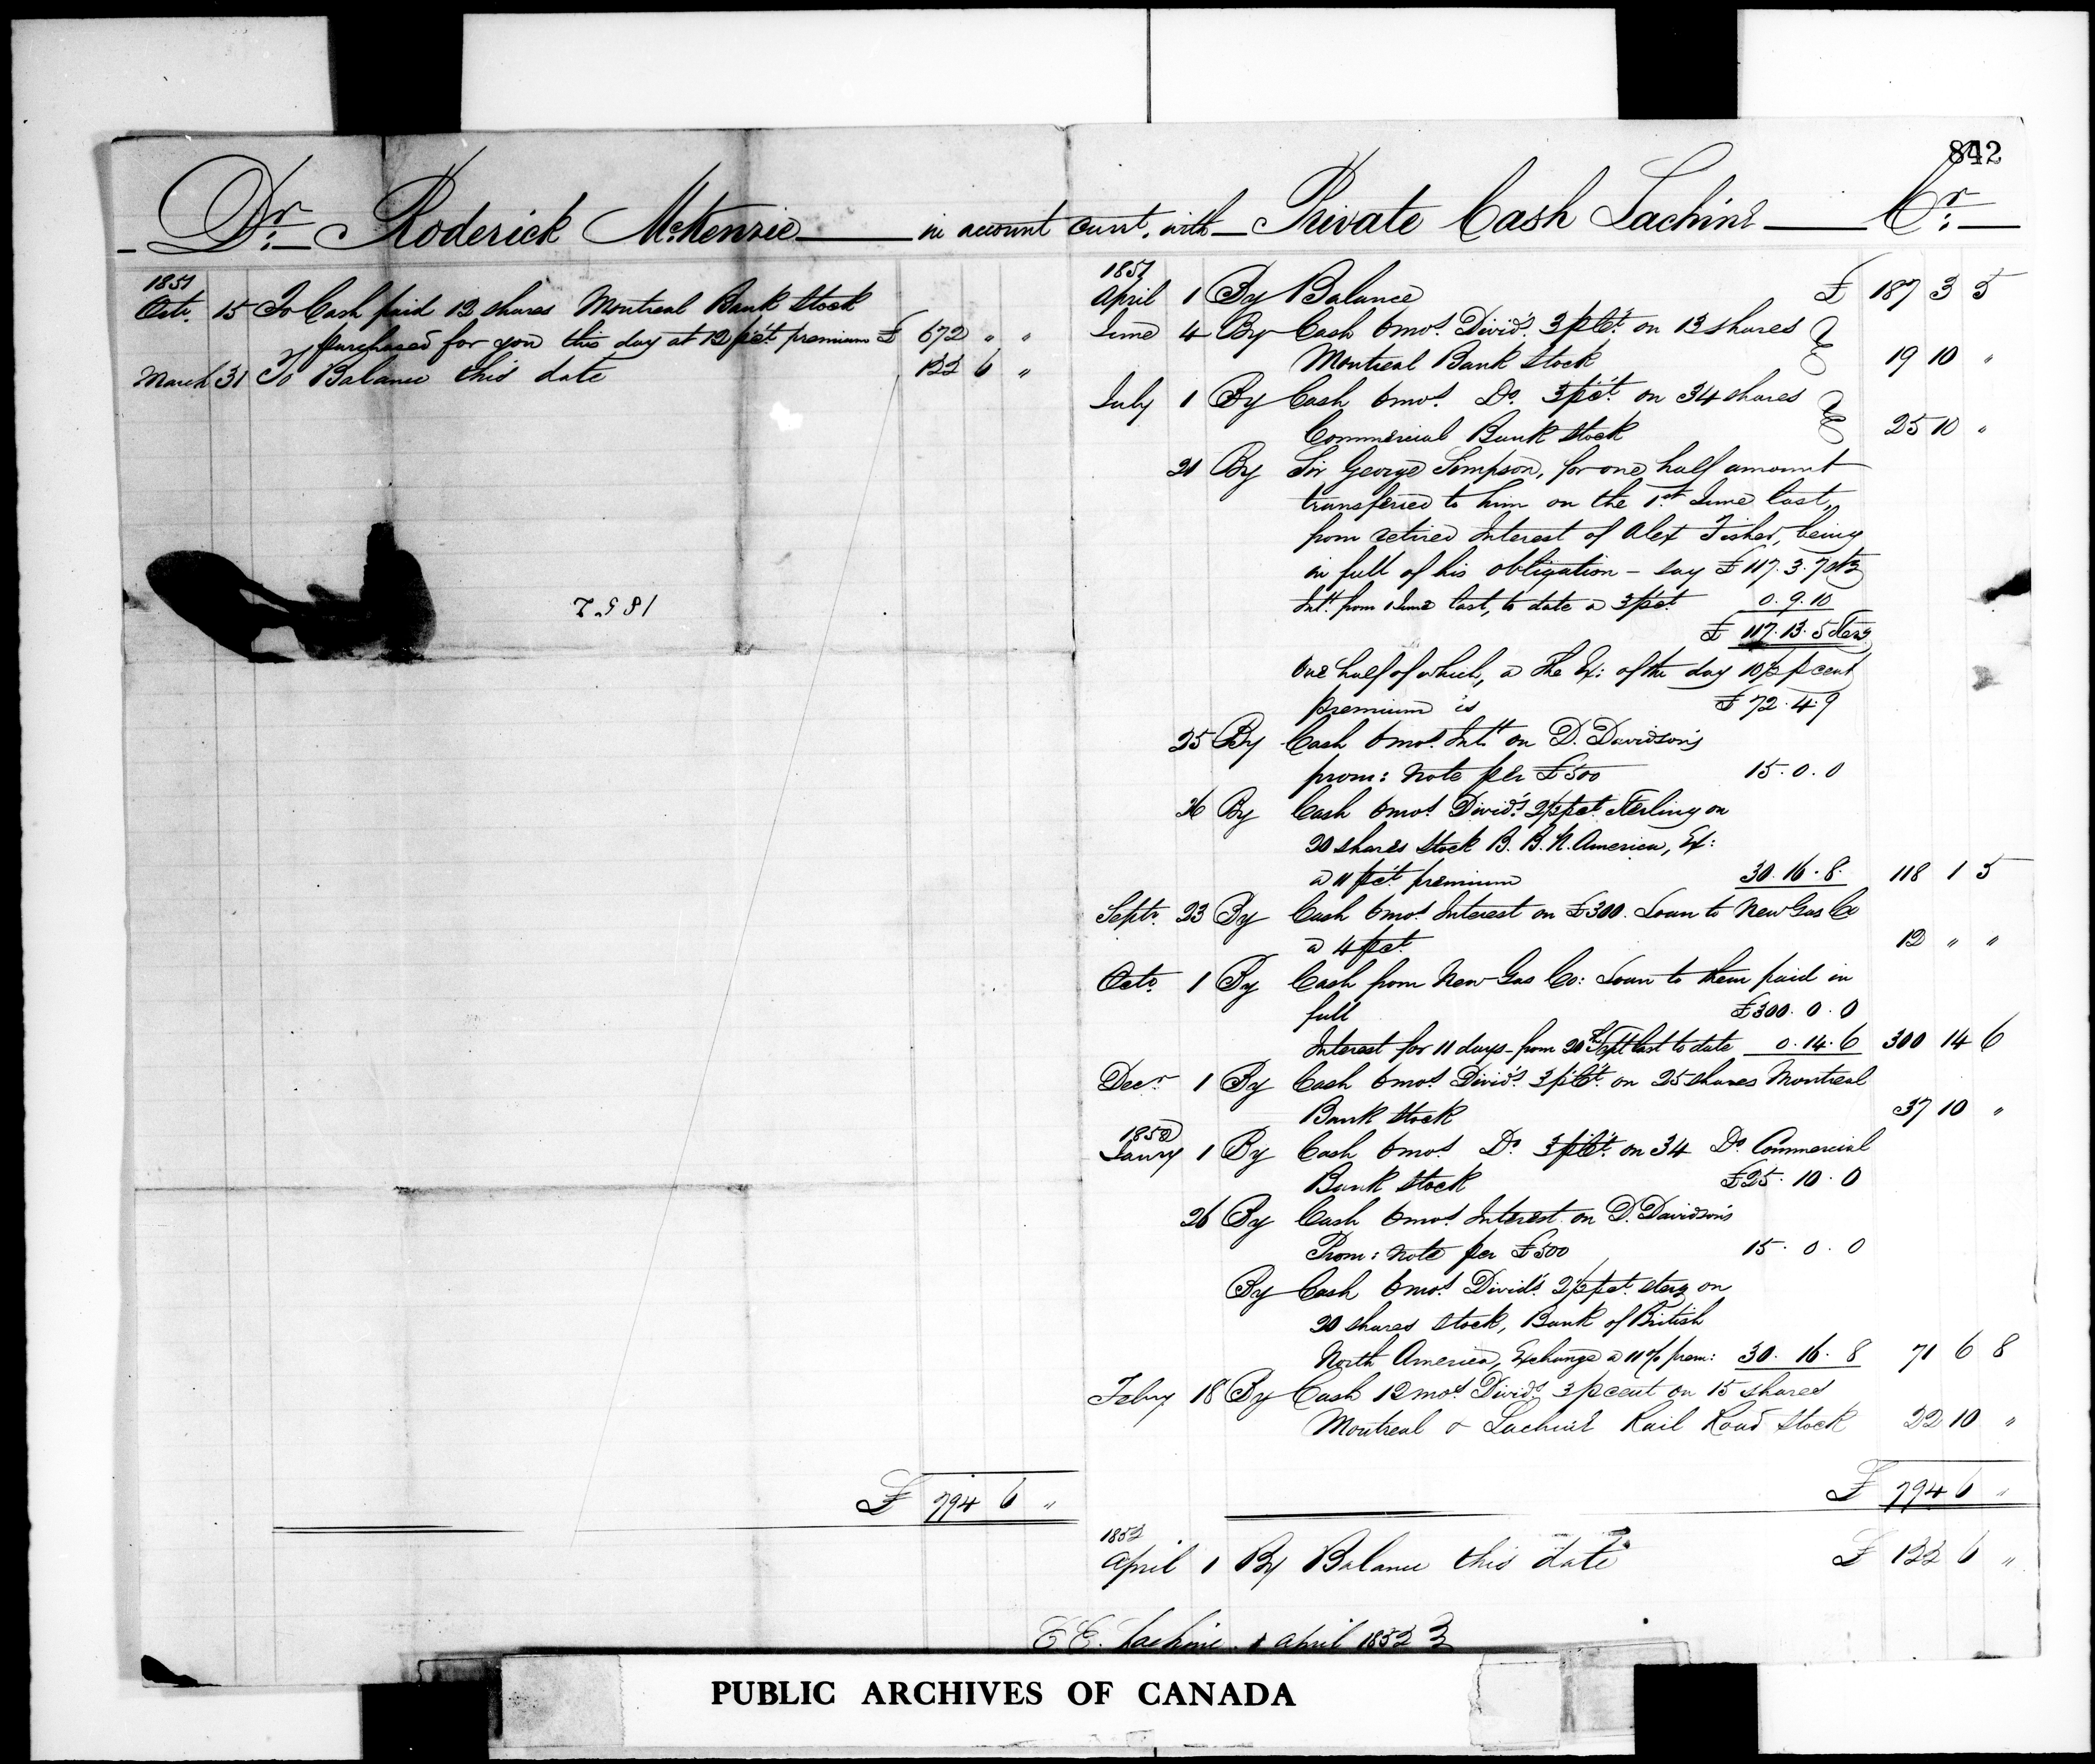 842
Dr. Roderick McKenzie in account curt. with Private Cash Lachine Cr.
1851
Octr. 15 To Cash paid 12 shares Montreal Bank Stock
purchased for you this day at 12 p ct. premium £ 672 " "
March 31 To Balance this date 122 6 "
1852
£ 794 6 "
1851
April 1 By Balance £ 187 3 5
June 4 By Cash 6 mos. Divid. 3 p Ct. on 13 shares
Montreal Bank Stock 19 10 "
July 1 By Cash 6 mos. Do. 3 p ct. on 34 shares
Commercial Bank Stock 25 10 "
21 By Sir George Simpson, for one half amount
transferred to him on the 1st June last,
from retired Interest of Alex Fisher, being
in full of his obligation - say £ 117. 3. 7 Stg
Intt. from 1 June last, to date a 3 p ct. 0. 9. 10
£ 117. 13. 5 Sterg
One half of which, a the Ex: of the day 10½ p cent
premium is £ 72. 4. 9
25 By Cash 6 mos. Intt. on D. Davidson's
prom: Note per £500 15. 0. 0
26 By Cash 6 mos. Divid. 2½ p ct. Sterling on
20 shares Stock B. B. N. America, Ex:
a 11 p ct. premium 30. 16. 8. 118 1 5
Septr. 23 By Cash 6 mos. Interest on £300. Loan to New Gas Co
a 4 p ct. 12 " "
Octr. 1 By Cash from New Gas Co: Loan to them paid in
full £300. 0. 0
Interest for 11 days - from 20th Sept last to date 0. 14. 6 300 14 6
Decr. 1 By Cash 6 mos. Divid. 3 p Ct. on 25 shares Montreal
Bank Stock 37 10 "
1852
Jany 1 By Cash 6 mos. Do. 3 p Ct. on 34 Do. Commercial
Bank Stock £25. 10. 0
26 By Cash 6 mos. Interest on D. Davidson's
Prom: Note per £500 15. 0. 0
By Cash 6 mos. Divid. 2½ p ct. sterg on
20 shares Stock, Bank of British
North America, Exchange a 11% prem: 30. 16. 8 71 6 8
Feby 18 By Cash 12 mos. Divid. 3 p cent on 15 shares
Montreal & Lachine Rail Road Stock 22 10 "
£ 794 6 "
1852
April 1 By Balance this date £ 122 6 "
E.E. Lachine 1 April 1852
PUBLIC ARCHIVES OF CANADA